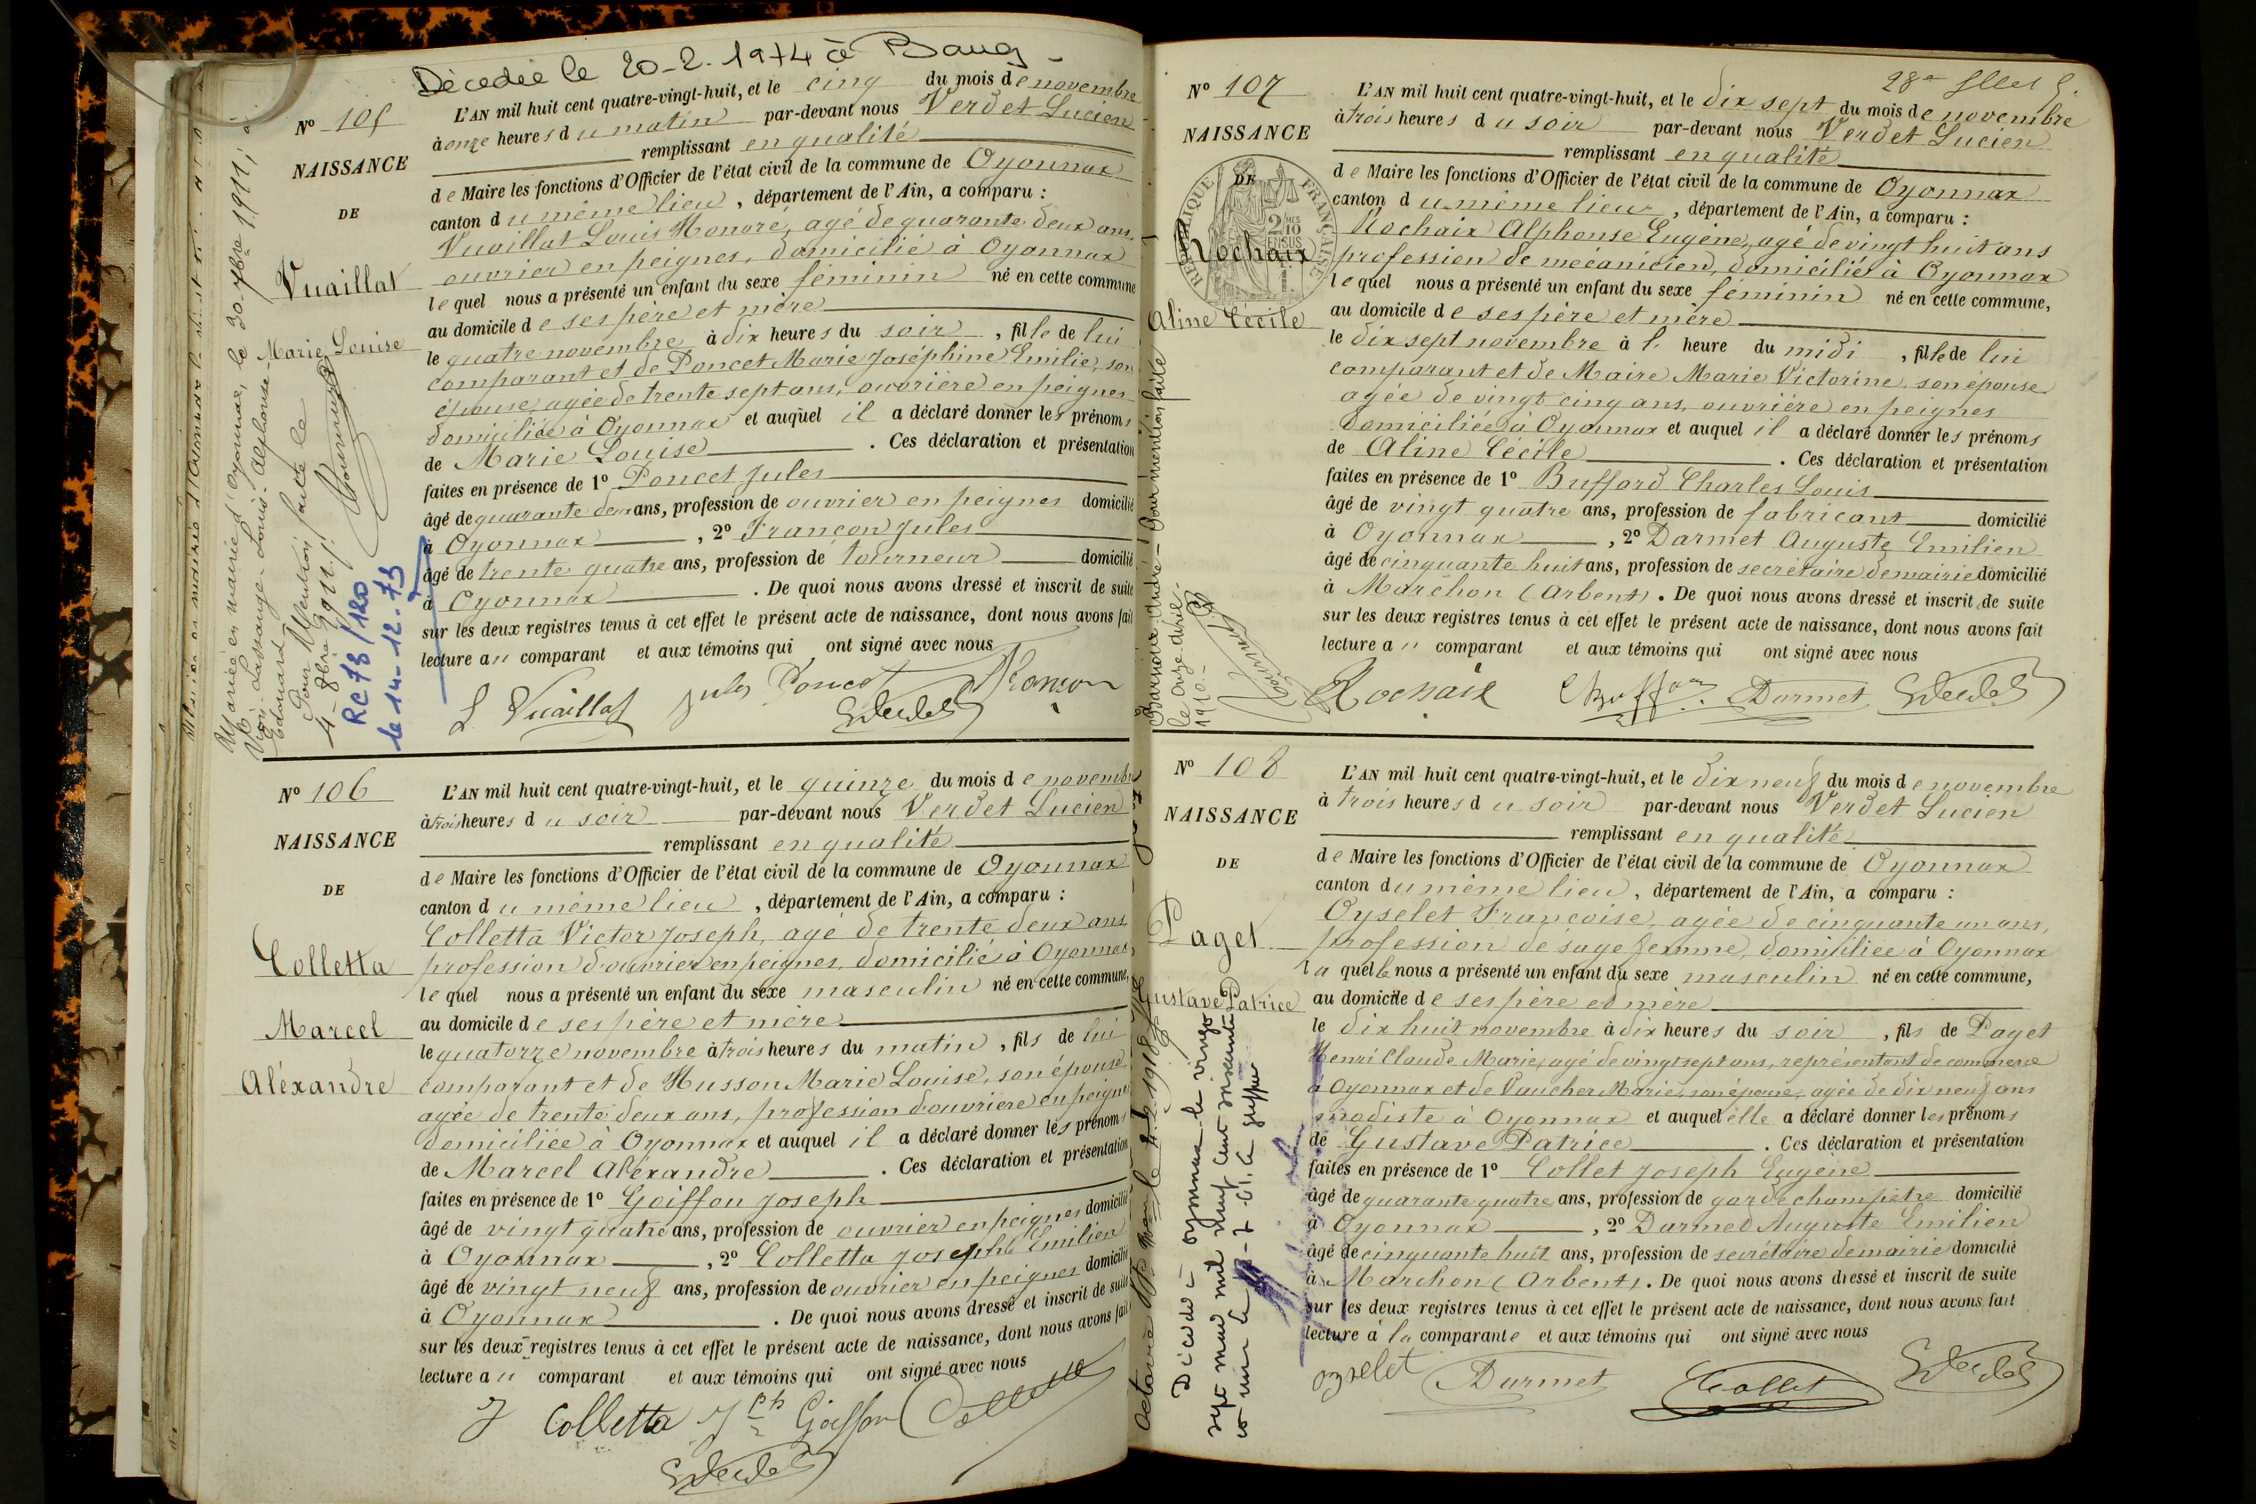 Décédée le 20-2-1974 à
Nº 105
NAISSANCE
DE
Vuaillat
Marie Louise
L'AN mil huit cent quatre-vingt-huit, et le cinq du mois de novembre
à onze heures du matin par-devant nous Verdet Lucien
remplissant en qualité
de Maire les fonctions d'Officier de l'état civil de la commune de Oyonnax
canton du même lieu, département de l'Ain, a comparu :
Vuaillat Louis Honoré, agé de quarante deux ans
ouvrier en peignes, domicilié à Oyonnax
lequel nous a présenté un enfant du sexe féminin né en cette commune
au domicile de ses père et mère
le quatre novembre à dix heures du soir, fille de lui
comparant et de Poncet Marie Joséphine Emilie, son
épouse, agée de trente sept ans, ouvrière en peignes
domiciliée à Oyonnax et auquel il a déclaré donner les prénoms
de Marie Louise. Ces déclaration et présentation
faites en présence de 1º Poncet Jules
âgé de quarante deux ans, profession de ouvrier en peignes domicilié
à Oyonnax, 2º Françon Jules
âgé de trente quatre ans, profession de tourneur domicilié
à Oyonnax. De quoi nous avons dressé et inscrit de suite
sur les deux registres tenus à cet effet le présent acte de naissance, dont nous avons fait
lecture au comparant et aux témoins qui ont signé avec nous
L Vuaillat Jules Poncet Françon
Mariée en mairie d'Oyonnax, le 30 7bre 1911, à
Lassauge Louis Alphonse
Edouard
Pour Mention faite le
4 8bre 1911.
RC 73/120
le 14-12-73
Nº 106
NAISSANCE
DE
Colletta
Marcel
Aléxandre
L'AN mil huit cent quatre-vingt-huit, et le quinze du mois de novembre
à trois heures du soir par-devant nous Verdet Lucien
remplissant en qualité
de Maire les fonctions d'Officier de l'état civil de la commune de Oyonnax
canton du même lieu, département de l'Ain, a comparu :
Colletta Victor Joseph, agé de trente deux ans
profession d'ouvrier en peignes, domicilié à Oyonnax,
lequel nous a présenté un enfant du sexe masculin né en cette commune,
au domicile de ses père et mère
le quatorze novembre à trois heures du matin, fils de lui
comparant et de Husson Marie Louise, son épouse
agée de trente deux ans, profession d'ouvrière en peignes
domiciliée à Oyonnax et auquel il a déclaré donner les prénoms
de Marcel Aléxandre. Ces déclaration et présentation
faites en présence de 1º Goiffon Joseph
âgé de vingt quatre ans, profession de ouvrier en peignes domicilié
à Oyonnax, 2º Colletta Joseph Emilien
âgé de vingt neuf ans, profession de ouvrier en peignes domicilié
à Oyonnax. De quoi nous avons dressé et inscrit de suite
sur les deux registres tenus à cet effet le présent acte de naissance, dont nous avons fait
lecture au comparant et aux témoins qui ont signé avec nous
J Colletta Jph Goiffon Colletta
28e
Nº 107
NAISSANCE
DE
RÉPUBLIQUE FRANÇAISE
2/10 EN SUS
Rochaix
Aline Cécile
L'AN mil huit cent quatre-vingt-huit, et le dix sept du mois de novembre
à trois heures du soir par-devant nous Verdet Lucien
remplissant en qualité
de Maire les fonctions d'Officier de l'état civil de la commune de Oyonnax
canton du même lieu, département de l'Ain, a comparu :
Rochaix Alphonse Eugène, agé de vingt huit ans
profession de mécanicien, domicilié à Oyonnax
lequel nous a présenté un enfant du sexe féminin né en cette commune,
au domicile de ses père et mère
le dix sept novembre à l' heure du midi, fille de lui
comparant et de Maire Marie Victorine, son épouse
agée de vingt cinq ans, ouvrière en peignes
domiciliée à Oyonnax et auquel il a déclaré donner les prénoms
de Aline Cécile. Ces déclaration et présentation
faites en présence de 1º Buffard Charles Louis
âgé de vingt quatre ans, profession de fabricant domicilié
à Oyonnax, 2º Darmet Auguste Emilien
âgé de cinquante huit ans, profession de secrétaire de mairie domicilié
à Marchon (Arbent). De quoi nous avons dressé et inscrit de suite
sur les deux registres tenus à cet effet le présent acte de naissance, dont nous avons fait
lecture au comparant et aux témoins qui ont signé avec nous
Rochaix Ch Buffard Darmet
André - Pour mention faite
le onze
1910.
Nº 108
NAISSANCE
DE
Paget
Gustave Patrice
L'AN mil huit cent quatre-vingt-huit, et le dix neuf du mois de novembre
à trois heures du soir par-devant nous Verdet Lucien
remplissant en qualité
de Maire les fonctions d'Officier de l'état civil de la commune de Oyonnax
canton du même lieu, département de l'Ain, a comparu :
Oyselet Françoise, agée de cinquante un ans,
profession de sage femme, domiciliée à Oyonnax
laquelle nous a présenté un enfant du sexe masculin né en cette commune,
au domicile de ses père et mère
le dix huit novembre à dix heures du soir, fils de Paget
Henri Claude Marie, agé de vingt sept ans, représentant de commerce
à Oyonnax et de Vaucher Marie, son épouse, agée de dix neuf ans
modiste à Oyonnax et auquel elle a déclaré donner les prénoms
de Gustave Patrice. Ces déclaration et présentation
faites en présence de 1º Collet Joseph Eugène
âgé de quarante quatre ans, profession de garde champêtre domicilié
à Oyonnax, 2º Darmet Auguste Emilien
âgé de cinquante huit ans, profession de secrétaire de mairie domicilié
à Marchon (Arbent). De quoi nous avons dressé et inscrit de suite
sur les deux registres tenus à cet effet le présent acte de naissance, dont nous avons fait
lecture à la comparante et aux témoins qui ont signé avec nous
Oyselet Darmet Collet
Décédé à Oyonnax le vingt
sept mai mil neuf cent soixante
et un